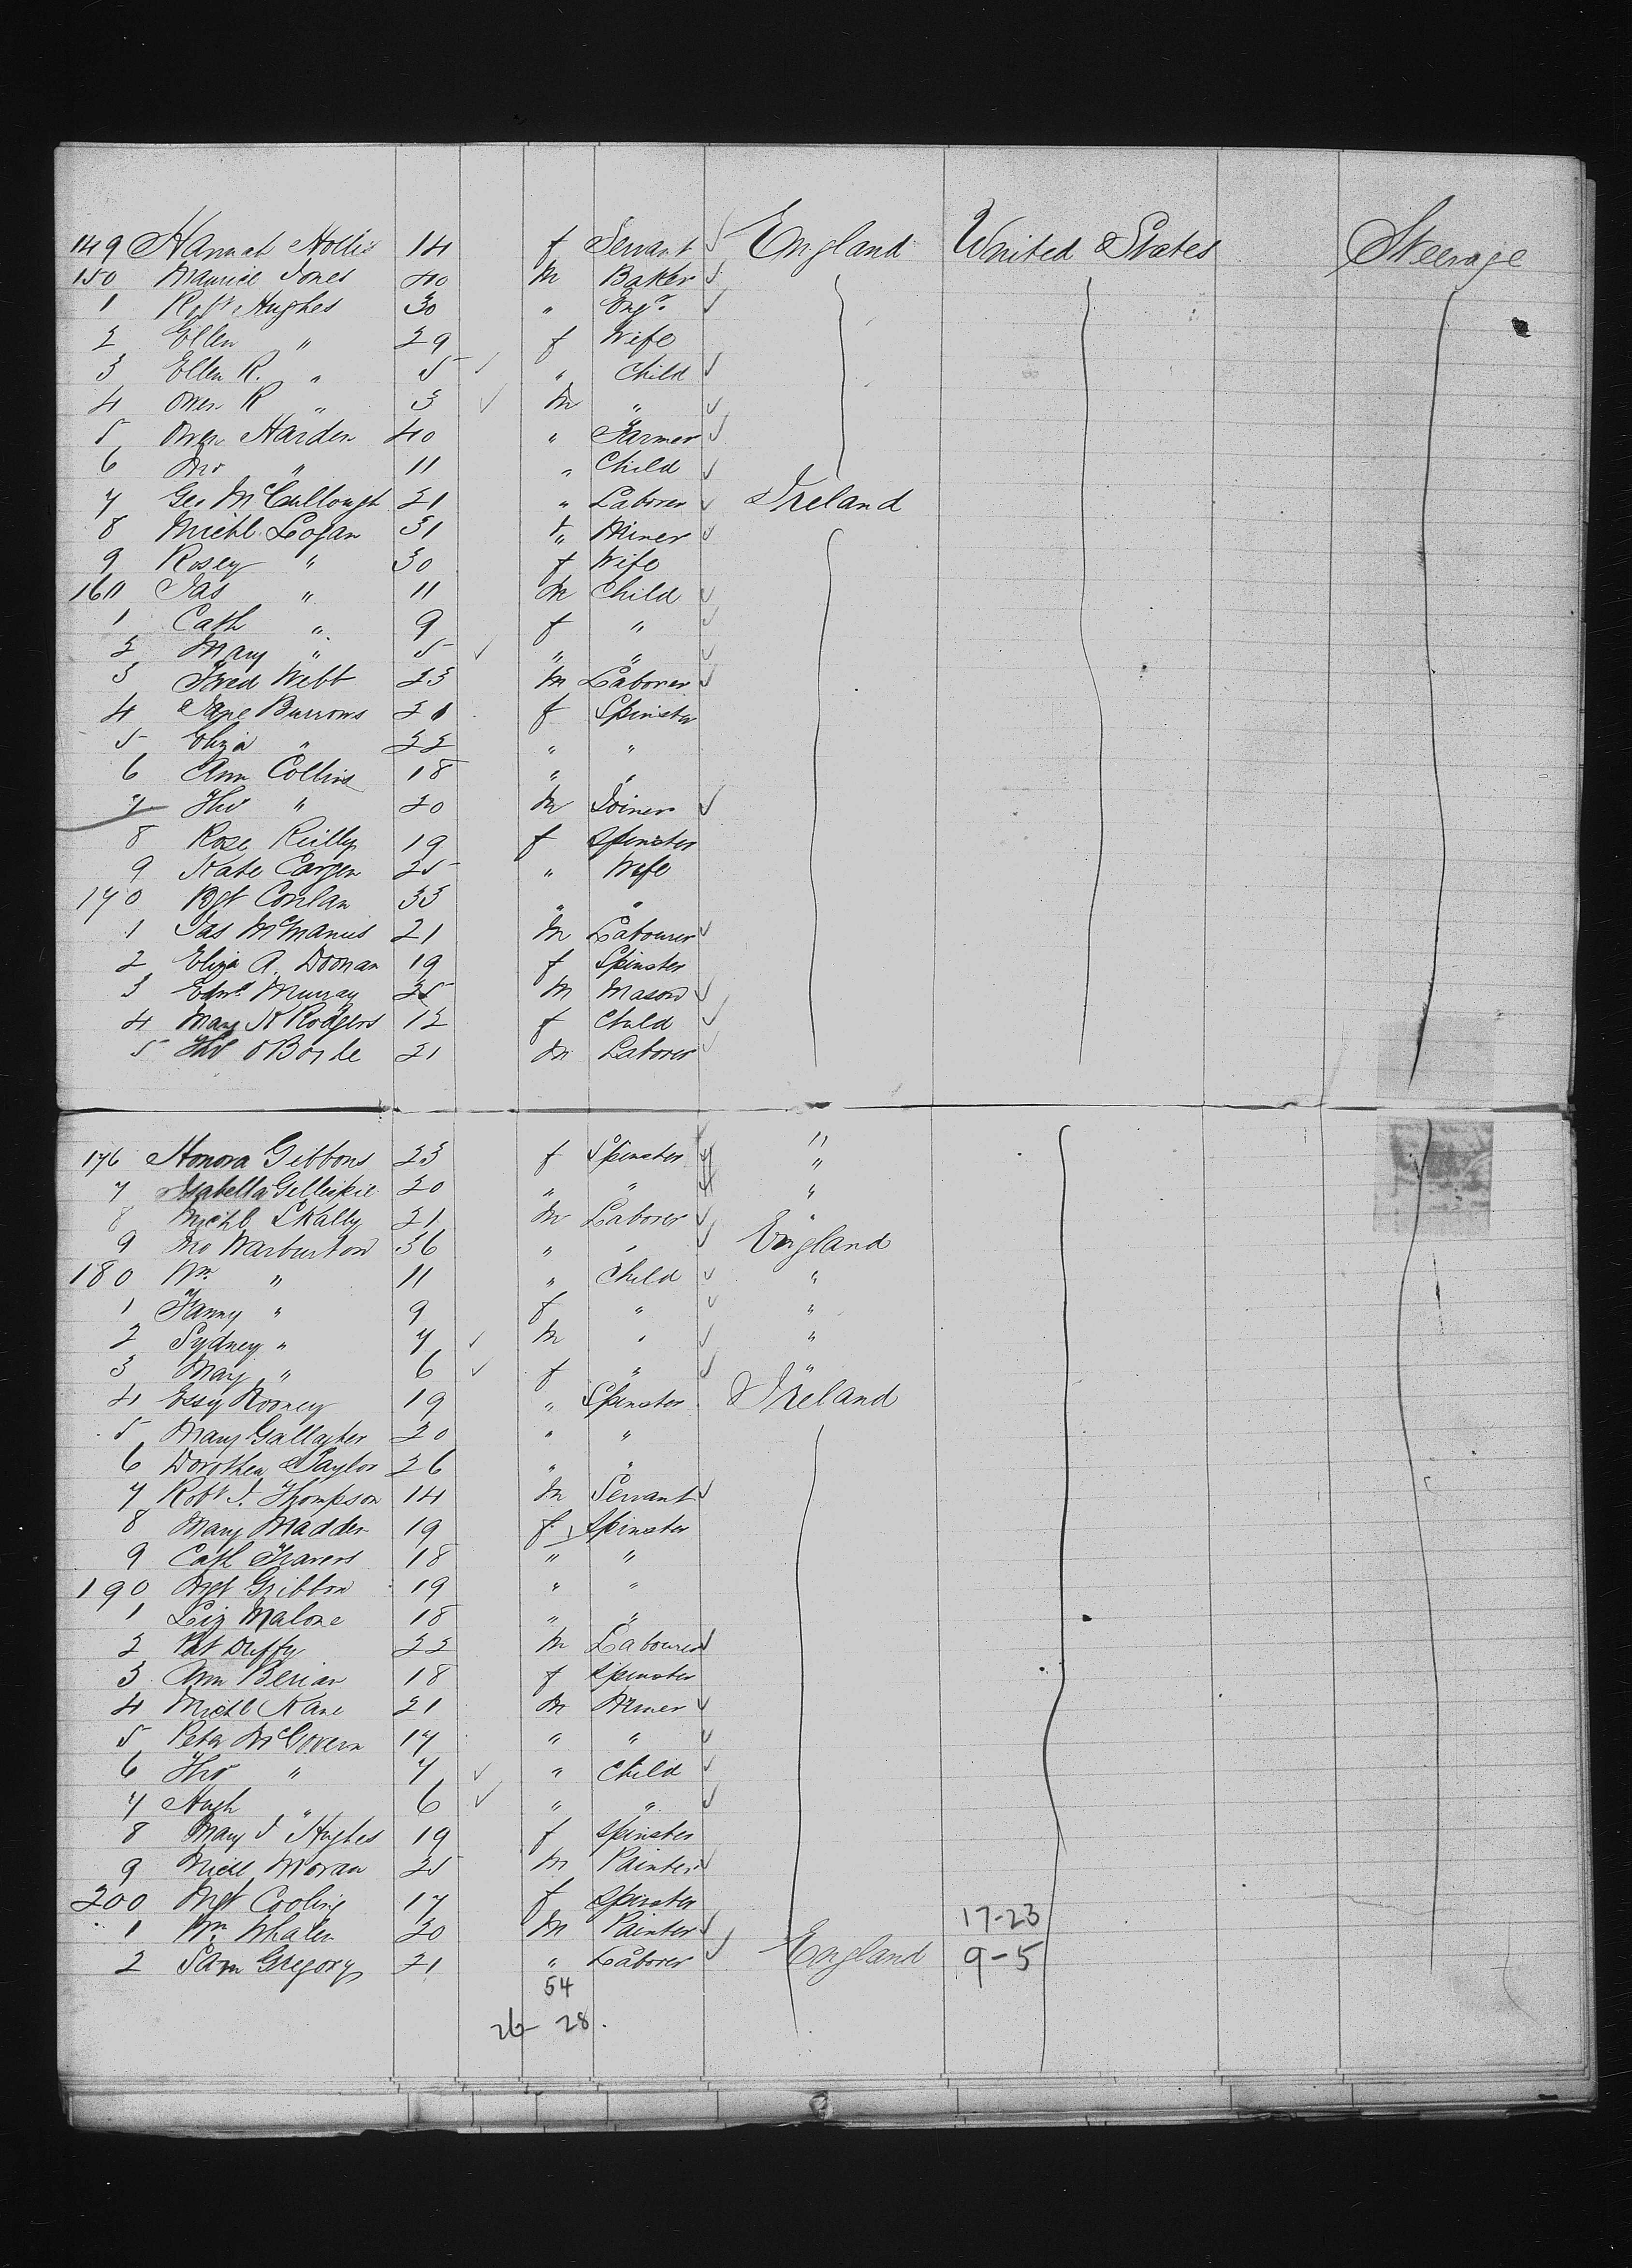 149 Hannah Hollis 14 f Servant England United States Steerage
150 Maurice Jones 40 m Baker
1 Robt Hughes 30 " Engr
2 Ellen " 29 f Wife
3 Ellen R. " 5 " Child
4 Owen R " 3 m "
5 Owen Harden 40 " Farmer
6 Jno " 11 " Child
7 Geo McCullough 21 " Laborer Ireland
8 Michl Logan 31 " Miner
9 Rosey " 30 f Wife
160 Jas " 11 m Child
1 Cath " 9 f "
2 Mary " 5 " "
3 Fred Webb 23 m Laborer
4 Jane Burrows 21 f Spinster
5 Eliza " 22 " "
6 Ann Collins 18 " "
7 Tho " 20 m Joiner
8 Rose Reilly 19 f Spinster
9 Kate Cargen 25 " Wife
170 Bgt Conlan 33 " "
1 Jas McManus 21 m Labourer
2 Eliza A. Doonan 19 f Spinster
3 Edwd Murray 25 m Mason
4 Mary K Rodgers 12 f Child
5 Tho O Boyle 21 m Laborer
176 Honora Gibbons 23 f Spinster "
7 Isabella Gillespie 20 " " "
8 Michl Skally 21 m Laborer "
9 Jno Warburton 36 " " England
180 Wm " 11 " Child "
1 Fanny " 9 f " "
2 Sydney " 7 m " "
3 Mary " 6 f " "
4 Essy Rooney 19 " Spinster Ireland
5 Mary Gallagher 20 " "
6 Dorothea Taylor 26 " "
7 Robt J. Thompson 14 m Servant
8 Mary Madden 19 f Spinster
9 Cath Travers 18 " "
190 Mgt Gribbon 19 " "
1 Liz Malone 18 " "
2 Pat Duffy 22 m Labourer
3 Ann Berian 18 f Spinster
4 Michl Kane 21 m Miner
5 Peter McGovern 17 " "
6 Tho " 7 " Child
7 Hugh " 6 " "
8 Mary J Hughes 19 f Spinster
9 Michl Moran 25 m Painter
200 Mgt Cooling 17 f Spinster
1 Wm Whalen 20 m Painter 17-23
2 Sam Gregory 21 " Laborer England 9-5
54
26 - 28.